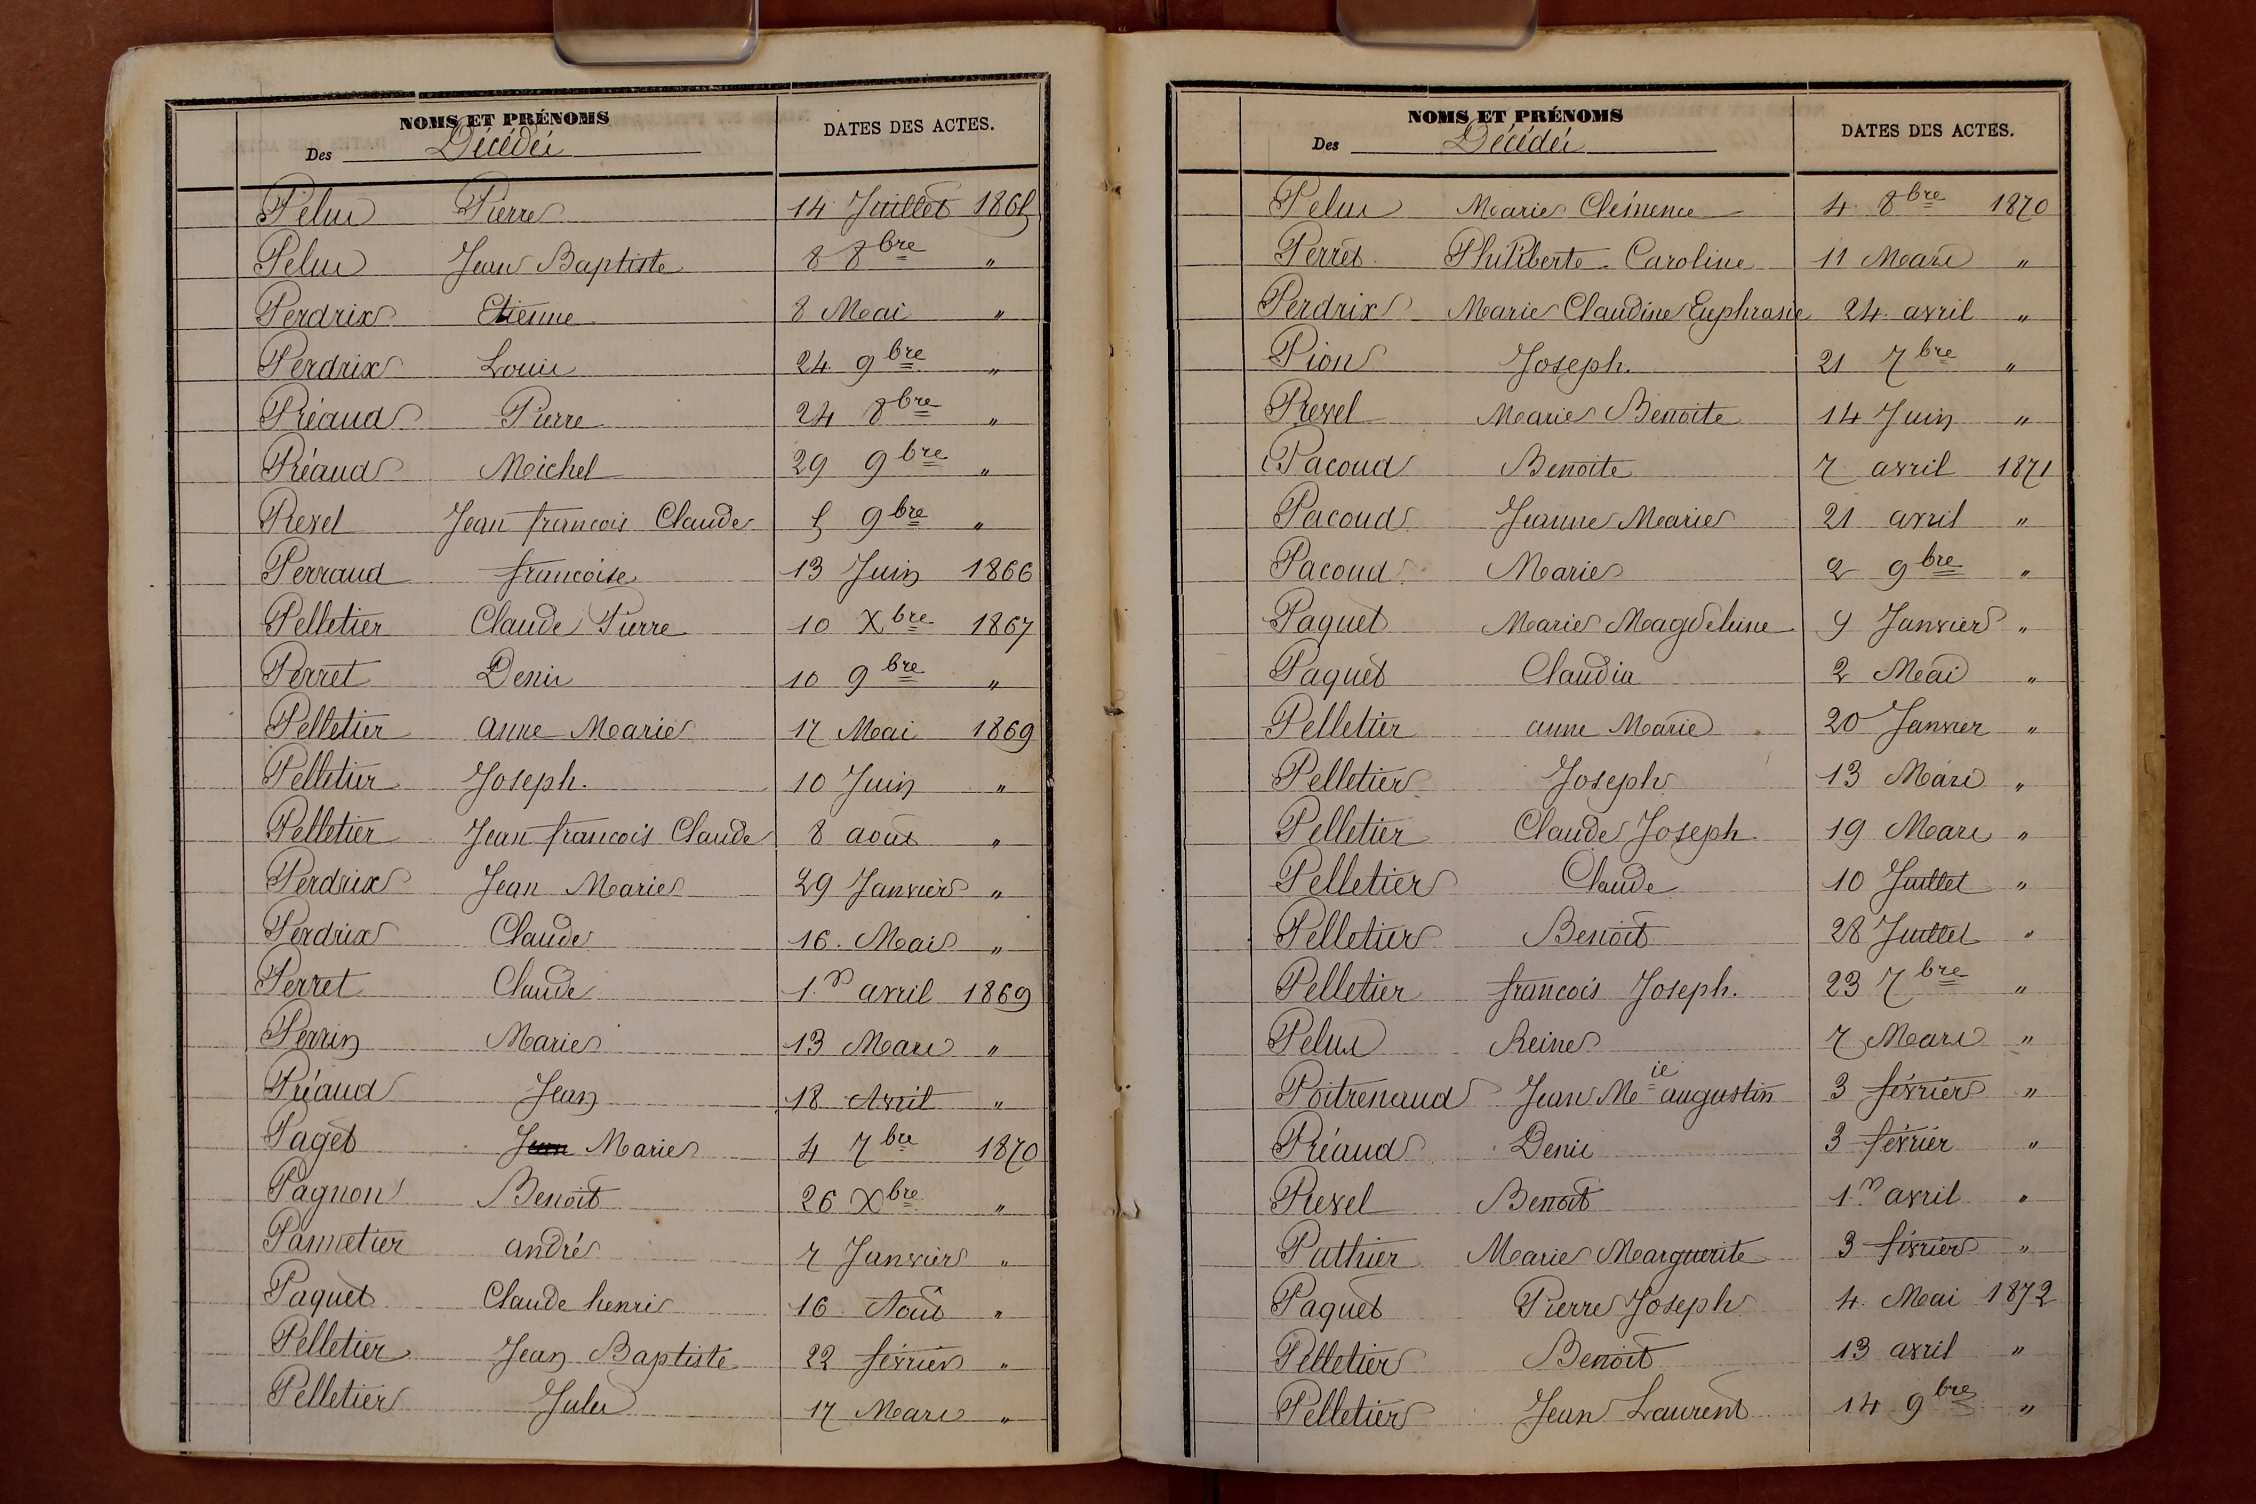 NOMS ET PRÉNOMS
Des Décédés
DATES DES ACTES.
Pelus Pierre 14 Juillet 1865
Pelus Jean Baptiste 8 8bre "
Perdrix Etienne 8 Mai "
Perdrix Louis 24 9bre "
Préaud Pierre 24 8bre "
Préaud Michel 29 9bre "
Prevel Jean françois Claude 5 9bre "
Perraud françoise 13 Juin 1866
Pelletier Claude Pierre 10 Xbre 1867
Perret Denis 10 9bre "
Pelletier anne Marie 17 Mai 1869
Pelletier Joseph. 10 Juin "
Pelletier Jean françois Claude 8 août "
Perdrix Jean Marie 29 Janvier "
Perdrix Claude 16. Mai "
Perret Claude 1.er avril 1869
Perrin Marie 13 Mars "
Préaud Jean 18 Avril "
Paget Marie 4 7bre 1870
Pagnon Benoît 26 Xbre "
Pannetier andré 7 Janvier "
Paquet Claude henri 16 Août "
Pelletier Jean Baptiste 22 février "
Pelletier Jules 17 Mars "
NOMS ET PRÉNOMS
Des Décédés
DATES DES ACTES.
Pelus Marie Clémence 4 8bre 1870
Perret Philiberte Caroline 11 Mars "
Perdrix Marie Claudine Euphrasie 24 avril "
Pion Joseph. 21 7bre "
Prevel Marie Benoite 14 Juin "
Pacoud Benoite 7 avril 1871
Pacoud Jeanne Marie 21 avril "
Pacoud Marie 2 9bre "
Paquet Marie Magdeleine 9 Janvier "
Paquet Claudia 2 Mai "
Pelletier anne Marie 20 Janvier "
Pelletier Joseph 13 Mars "
Pelletier Claude Joseph 19 Mars "
Pelletier Claude 10 Juillet "
Pelletier Benoît 28 Juillet "
Pelletier françois Joseph. 23 7bre "
Pelus Reine 7 Mars "
Poitrenaud Jean Mie augustin 3 février "
Préaud Denis 3 février "
Prevel Benoît 1.er avril "
Puthier Marie Marguerite 3 février "
Paquet Pierre Joseph 4. Mai 1872
Pelletier Benoît 13 avril "
Pelletier Jean Laurent 14 9bre "